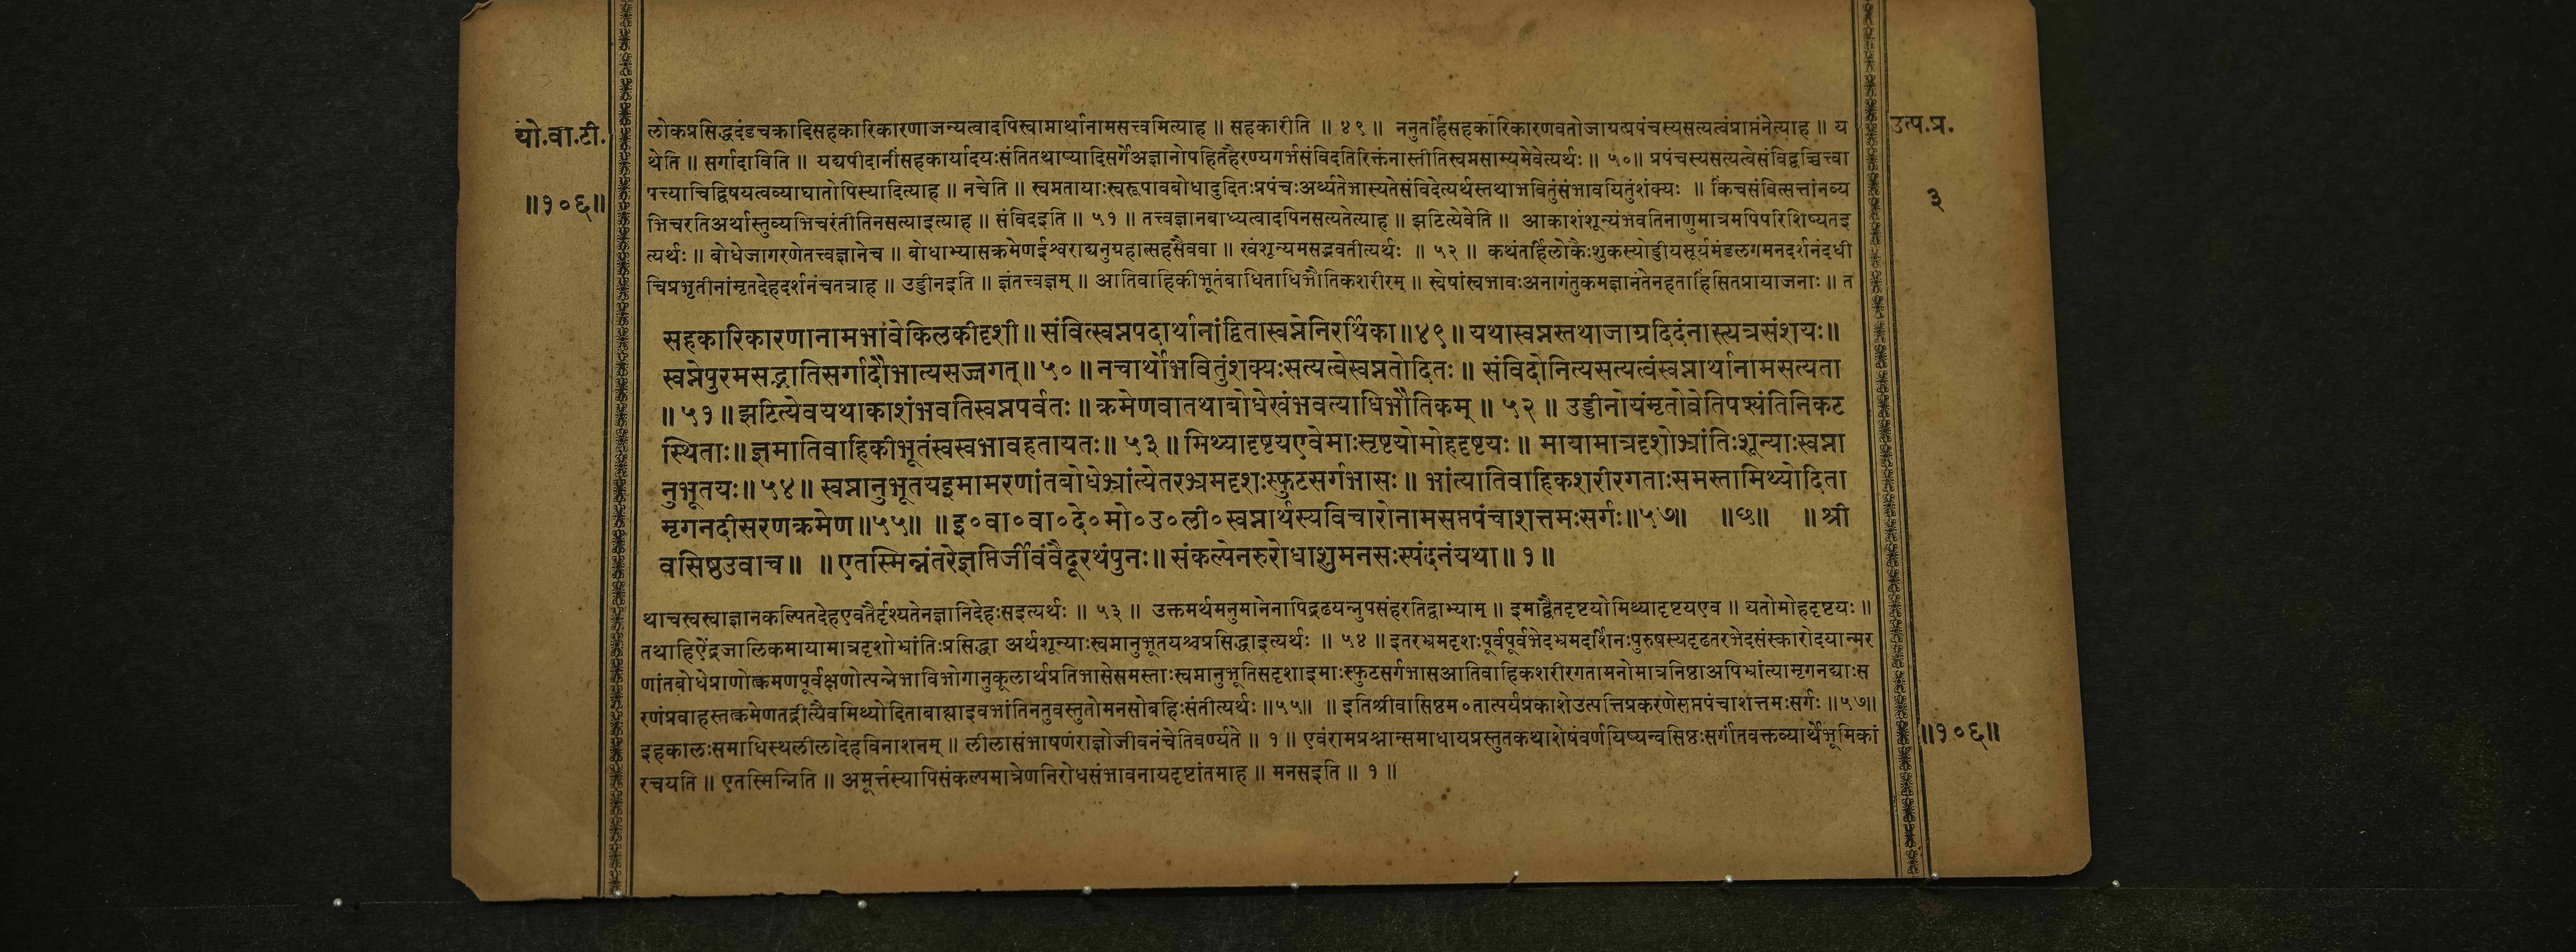 यो.वा.टी.
॥१०६॥
लोकप्रसिद्धदंडचक्रादिसहकारिकारणाजन्यत्वादपिस्वाप्नार्थानामसत्त्वमित्याह ॥ सहकारीति ॥ ४९ ॥ ननुतर्हिसहकारिकारणवतोजाग्रत्प्रपंचस्यसत्यत्वंप्राप्तंनेत्याह ॥ य
थेति ॥ सर्गादाविति ॥ यद्यपीदानींसहकार्यादयःसंतितथाप्यादिसर्गेअज्ञानोपहितहैरण्यगर्भसंविदतिरिक्तंनास्तीतिस्वप्नसाम्यमेवेत्यर्थः ॥ ५० ॥ प्रपंचस्यसत्यत्वेसंविद्वच्चित्त्वा
पत्त्याचिद्विषयत्वव्याघातोपिस्यादित्याह ॥ नचेति ॥ स्वप्नतायाःस्वरूपावबोधादुदितःप्रपंचःअर्थ्यतेभास्यतेसंविदेत्यर्थस्तथाभवितुंसंभावयितुंशक्यः ॥ किंचसंवित्सत्तांनव्य
भिचरतिअर्थास्तुव्यभिचरंतीतिनसत्याइत्याह ॥ संविदइति ॥ ५१ ॥ तत्त्वज्ञानबाध्यत्वादपिनसत्यतेत्याह ॥ झटित्येवेति ॥ आकाशंशून्यंभवतिनाणुमात्रमपिपरिशिष्यतइ
त्यर्थः ॥ बोधेजागरणेतत्त्वज्ञानेच ॥ बोधाभ्यासक्रमेणईश्वराद्यनुग्रहात्सहसैववा ॥ खंशून्यमसद्भवतीत्यर्थः ॥ ५२ ॥ कथंतर्हिलोकैःशुकस्योड्डीयसूर्यमंडलगमनदर्शनंदधी
चिप्रभृतीनांमृतदेहदर्शनंचतत्राह ॥ उड्डीनइति ॥ ज्ञंतत्त्वज्ञम् ॥ आतिवाहिकीभूतंबाधिताधिभौतिकशरीरम् ॥ स्वेषांस्वभावःअनागंतुकमज्ञानंतेनहताहिंसितप्रायाजनाः ॥ त
सहकारिकारणानामभावेकिलकीदृशी ॥ संवित्स्वप्नपदार्थानांद्वितास्वप्नेनिरर्थिका ॥ ४९ ॥ यथास्वप्नस्तथाजाग्रदिदंनास्त्यत्रसंशयः ॥
स्वप्नेपुरमसद्भातिसर्गादौभात्यसज्जगत् ॥ ५० ॥ नचार्थोभवितुंशक्यःसत्यत्वेस्वप्नतोदितः ॥ संविदोनित्यसत्यत्वंस्वप्नार्थानामसत्यता
॥ ५१ ॥ झटित्येवयथाकाशंभवतिस्वप्नपर्वतः ॥ क्रमेणवातथाबोधेखंभवत्याधिभौतिकम् ॥ ५२ ॥ उड्डीनोयंमृतोवेतिपश्यंतिनिकट
स्थिताः ॥ ज्ञमातिवाहिकीभूतंस्वस्वभावहतायतः ॥ ५३ ॥ मिथ्यादृष्टयएवेमाःसृष्टयोमोहदृष्टयः ॥ मायामात्रदृशोभ्रांतिःशून्याःस्वप्ना
नुभूतयः ॥ ५४ ॥ स्वप्नानुभूतयइमामरणांतबोधेभ्रांत्येतरभ्रमदृशःस्फुटसर्गभासः ॥ भांत्यातिवाहिकशरीरगताःसमस्तामिथ्योदिता
मृगनदीसरणक्रमेण ॥५५॥ ॥ इ०वा०वा०दे०मो०उ०ली०स्वप्नार्थस्यविचारोनामसप्तपंचाशत्तमःसर्गः ॥५७॥ ॥छ॥ ॥ श्री
वसिष्ठउवाच ॥ ॥ एतस्मिन्नंतरेज्ञप्तिर्जीवंवैदूरथंपुनः ॥ संकल्पेनरुरोधाशुमनसःस्पंदनंयथा ॥ १ ॥
थाचस्वस्वाज्ञानकल्पितदेहएवतैर्दृश्यतेनज्ञानिदेहःसइत्यर्थः ॥ ५३ ॥ उक्तमर्थमनुमानेनापिद्रढयन्नुपसंहरतिद्वाभ्याम् ॥ इमाद्वैतदृष्टयोमिथ्यादृष्टयएव ॥ यतोमोहदृष्टयः ॥
तथाहिऐंद्रजालिकमायामात्रदृशोभ्रांतिःप्रसिद्धा अर्थशून्याःस्वप्नानुभूतयश्चप्रसिद्धाइत्यर्थः ॥ ५४ ॥ इतरभ्रमदृशःपूर्वपूर्वभेदभ्रमदर्शिनःपुरुषस्यदृढतरभेदसंस्कारोदयान्मर
णांतबोधेप्राणोत्क्रमणपूर्वक्षणोत्पन्नेभाविभोगानुकूलार्थप्रतिभासेसमस्ताःस्वप्नानुभूतिसदृशाइमाःस्फुटसर्गभासआतिवाहिकशरीरगतामनोमात्रनिष्ठाअपिभ्रांत्यामृगनद्याःस
रणंप्रवाहस्तत्क्रमेणतद्रीत्यैवमिथ्योदिताबाह्याइवभांतिनतुवस्तुतोमनसोबहिःसंतीत्यर्थः ॥५५॥ ॥ इतिश्रीवासिष्ठम०तात्पर्यप्रकाशेउत्पत्तिप्रकरणेसप्तपंचाशत्तमःसर्गः ॥५७॥
इहकालःसमाधिस्थलीलादेहविनाशनम् ॥ लीलासंभाषणंराज्ञोजीवनंचेतिवर्ण्यते ॥ १ ॥ एवंरामप्रश्नान्समाधायप्रस्तुतकथाशेषंवर्णयिष्यन्वसिष्ठःसर्गांतवक्तव्यार्थेभूमिकां
रचयति ॥ एतस्मिन्निति ॥ अमूर्त्तस्यापिसंकल्पमात्रेणनिरोधसंभावनायदृष्टांतमाह ॥ मनसइति ॥ १ ॥
उत्प.प्र.
३
॥१०६॥